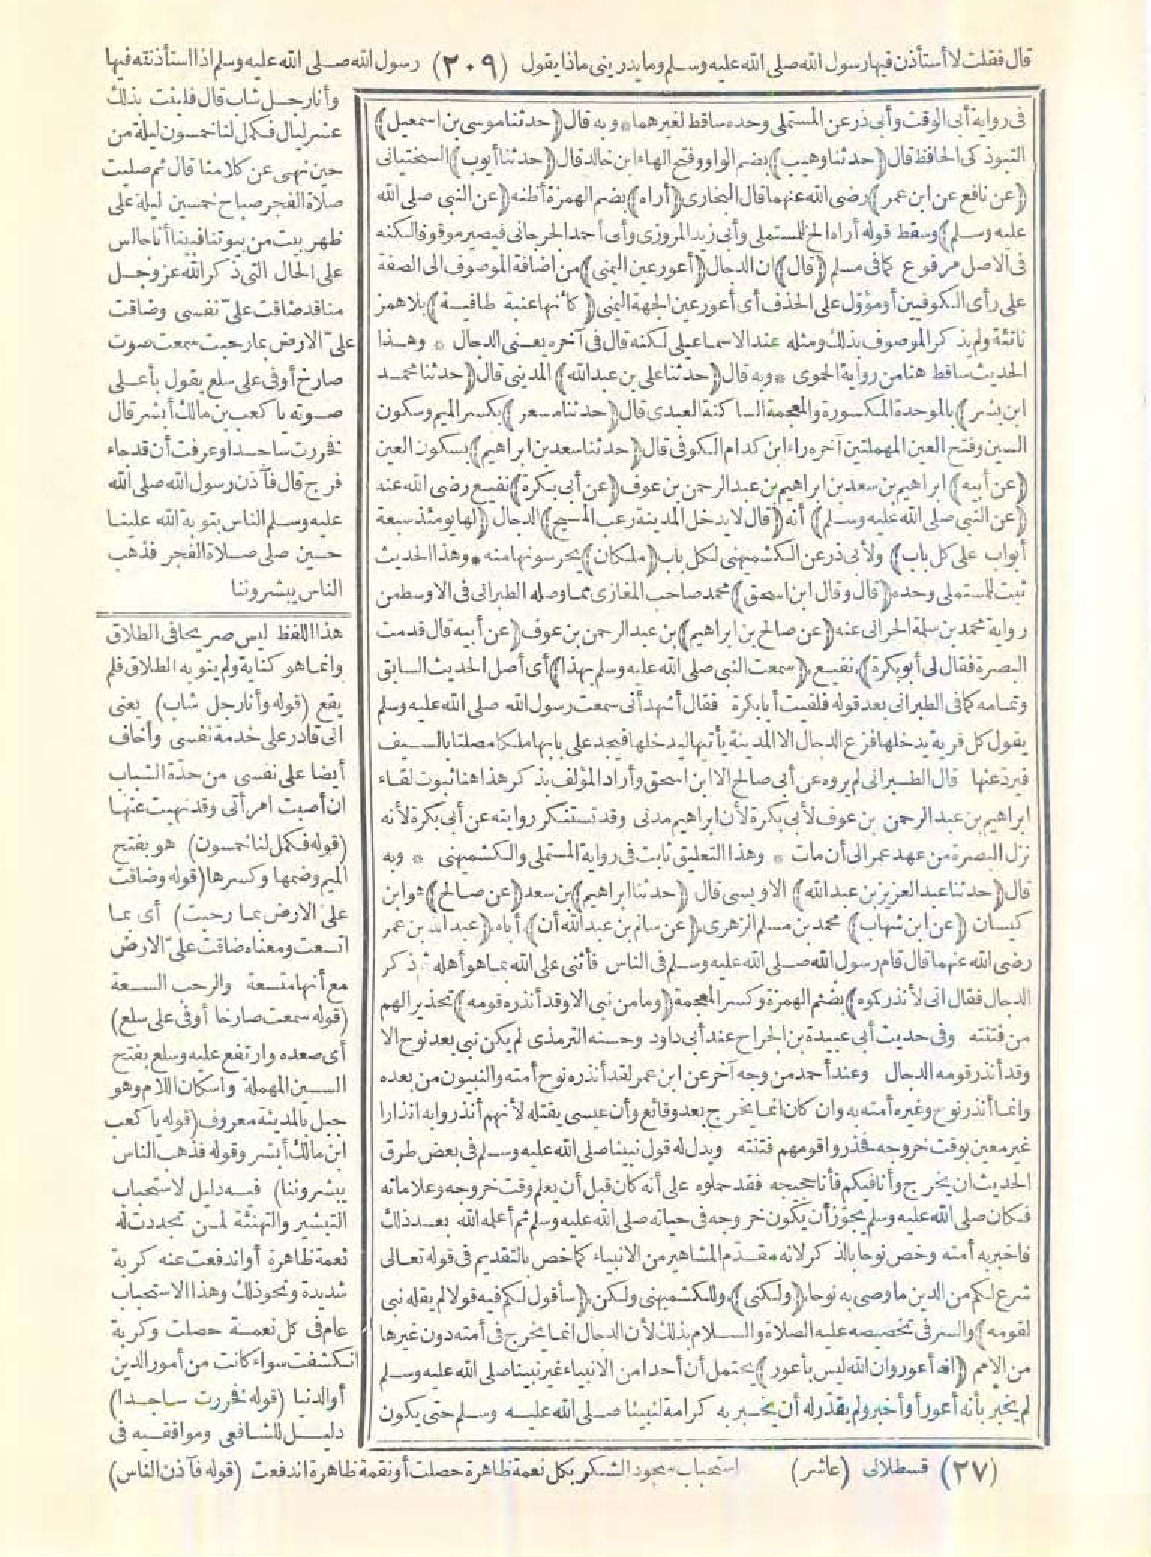 قال فقلت لا أستأذن فيها رسول الله صلى الله عليه وسلم وما يدريني ماذا يقول (٢٠٩) رسول الله صلى الله عليه وسلم اذا استأذنته فيها
فى رواية أبى الوقت وأبى ذر عن المستملى وحده ساقط لغيرهما * وبه قال (حدثنا موسى بن اسمعيل)
التبوذكى الحافظ قال (حدثنا وهيب) بضم الواو وفتح الهاء ابن خالد قال (حدثنا أيوب) السختيانى
(عن نافع عن ابن عمر) رضى الله عنهما قال البخارى (أراه) بضم الهمزة أظنه (عن النبى صلى الله
عليه وسلم) وسقط قوله أراه الخ للمستملى وأبى زيد المروزى وأبى أحمد الجرجانى فيصير موقوفا لكنه
فى الاصل مرفوع كما فى مسلم (قال) ان الدجال (أعور عين اليمنى) من اضافة الموصوف الى الصفة
على رأى الكوفيين أو مؤول على الحذف أى أعور عين الجهة اليمنى (كأنها عنبة طافية) بلا همز
ناتئة ولم يذكر الموصوف بذلك ومثله عند الاسماعيلى لكنه قال فى آخره يعنى الدجال * وهذا
الحديث ساقط هنا من رواية الحموى * وبه قال (حدثنا على بن عبد الله) المدينى قال (حدثنا محمد
ابن بشر) بالموحدة المكسورة والمعجمة الساكنة العبدى قال (حدثنا مسعر) بكسر الميم وسكون
السين وفتح العين المهملتين آخره راء ابن كدام الكوفى قال (حدثنا سعد بن ابراهيم) بسكون العين
(عن أبيه) ابراهيم بن سعد بن ابراهيم بن عبد الرحمن بن عوف (عن أبى بكرة) نفيع رضى الله عنه
(عن النبى صلى الله عليه وسلم) أنه (قال لا يدخل المدينة رعب المسيح) الدجال (لها يومئذ سبعة
أبواب على كل باب) ولأبى ذر عن الكشميهنى لكل باب (ملكان) يحرسونها منه * وهذا الحديث
ثبت للمستملى وحده (قال وقال ابن اسحق) محمد صاحب المغازى مما وصله الطبرانى فى الاوسط من
رواية محمد بن سلمة الحرانى عنه (عن صالح بن ابراهيم) بن عبد الرحمن بن عوف (عن أبيه قال قدمت
البصرة فقال لى أبو بكرة) نفيع (سمعت النبى صلى الله عليه وسلم بهذا) أى أصل الحديث السابق
وتمامه كما فى الطبرانى بعد قوله فلقيت أبا بكرة فقال أشهد أنى سمعت رسول الله صلى الله عليه وسلم
يقول كل قرية يدخلها فزع الدجال الا المدينة يأتيها ليدخلها فيجد على بابها ملكا مصلتا بالسيف
فيرده عنها قال الطبرانى لم يروه عن أبى صالح الا ابن اسحق وأراد المؤلف بذكر هذا هنا ثبوت لقاء
ابراهيم بن عبد الرحمن بن عوف لأبى بكرة لأن ابراهيم مدنى وقد تستنكر روايته عن أبى بكرة لأنه
نزل البصرة من عهد عمر الى أن مات * وهذا التعليق ثابت فى رواية المستملى والكشميهنى * وبه
قال (حدثنا عبد العزيز بن عبد الله) الاويسى قال (حدثنا ابراهيم) بن سعد (عن صالح) هو ابن
كيسان (عن ابن شهاب) محمد بن مسلم الزهرى (عن سالم بن عبد الله أن) أباه (عبد الله بن عمر
رضى الله عنهما قال قام رسول الله صلى الله عليه وسلم فى الناس فأثنى على الله بما هو أهله ثم ذكر
الدجال فقال انى لأنذركموه) بضم الهمزة وكسر المعجمة (وما من نبى الا وقد أنذره قومه) تحذيرا لهم
من فتنته وفى حديث أبى عبيدة بن الجراح عند أبى داود وحسنه الترمذى لم يكن نبى بعد نوح الا
وقد أنذر قومه الدجال وعند أحمد من وجه آخر عن ابن عمر لقد أنذره نوح أمته والنبيون من بعده
وانما أنذر نوح وغيره أمته به وان كان انما يخرج بعد وقائع وأن عيسى يقتله لأنهم أنذروا به انذارا
غير معين بوقت خروجه فحذروا قومهم فتنته ويدل له قول نبينا صلى الله عليه وسلم فى بعض طرق
الحديث ان يخرج وأنا فيكم فأنا حجيجه فقد حملوه على أنه كان قبل أن يعلم وقت خروجه وعلاماته
فكان صلى الله عليه وسلم يجوّز أن يكون خروجه فى حياته صلى الله عليه وسلم ثم أعلمه الله بعد ذلك
فاخبر به أمته وخص نوحا بالذكر لانه مقدّم المشاهير من الانبياء كما خص بالتقديم فى قوله تعالى
شرع لكم من الدين ما وصى به نوحا (ولكنى) وللكشميهنى ولكن (سأقول لكم فيه قولا لم يقله نبى
لقومه) والسر فى تخصيصه عليه الصلاة والسلام بذلك لأن الدجال انما يخرج فى أمته دون غيرها
من الامم (انه أعور وان الله ليس بأعور) يحتمل أن أحدا من الانبياء غير نبينا صلى الله عليه وسلم
لم يخبر بأنه أعور أو أخبر ولم يقدّر له أن يخبر به كرامة لنبينا صلى الله عليه وسلم حتى يكون
وأنا رجل شاب قال فلبثت بذلك
عشر ليال فكمل لنا خمسون ليلة من
حين نهى عن كلامنا قال ثم صليت
صلاة الفجر صباح خمسين ليلة على
ظهر بيت من بيوتنا فبينا أنا جالس
على الحال التى ذكر الله عز وجل
منا قد ضاقت علىّ نفسى وضاقت
علىّ الارض بما رحبت سمعت صوت
صارخ أوفى على سلع يقول بأعلى
صوته يا كعب بن مالك أبشر قال
فخررت ساجدا وعرفت أن قد جاء
فرج قال فآذن رسول الله صلى الله
عليه وسلم الناس بتوبة الله علينا
حين صلى صلاة الفجر فذهب
الناس يبشروننا
هذا اللفظ ليس صريحا فى الطلاق
وانما هو كناية ولم ينو به الطلاق فلم
يقع (قوله وأنا رجل شاب) يعنى
انى قادر على خدمة نفسى وأخاف
أيضا على نفسى من حدّة الشباب
ان أصبت امرأتى وقد نهيت عنها
(قوله فكمل لنا خمسون) هو بفتح
الميم وضمها وكسرها (قوله وضاقت
على الارض بما رحبت) أى بما
اتسعت ومعناه ضاقت علىّ الارض
مع أنها متسعة والرحب السعة
(قوله سمعت صارخا أوفى على سلع)
أى صعده وارتفع عليه وسلع بفتح
السين المهملة واسكان اللام وهو
جبل بالمدينة معروف (قوله يا كعب
ابن مالك أبشر وقوله فذهب الناس
يبشروننا) فيه دليل لاستحباب
التبشير والتهنئة لمن تجددت له
نعمة ظاهرة أو اندفعت عنه كربة
شديدة ونحو ذلك وهذا الاستحباب
عام فى كل نعمة حصلت وكربة
انكشفت سواء كانت من أمور الدين
أو الدنيا (قوله فخررت ساجدا)
دليل للشافعى وموافقيه فى
(٢٧) قسطلانى (عاشر) استحباب سجود الشكر بكل نعمة ظاهرة حصلت أو نقمة ظاهرة اندفعت (قوله فآذن الناس)